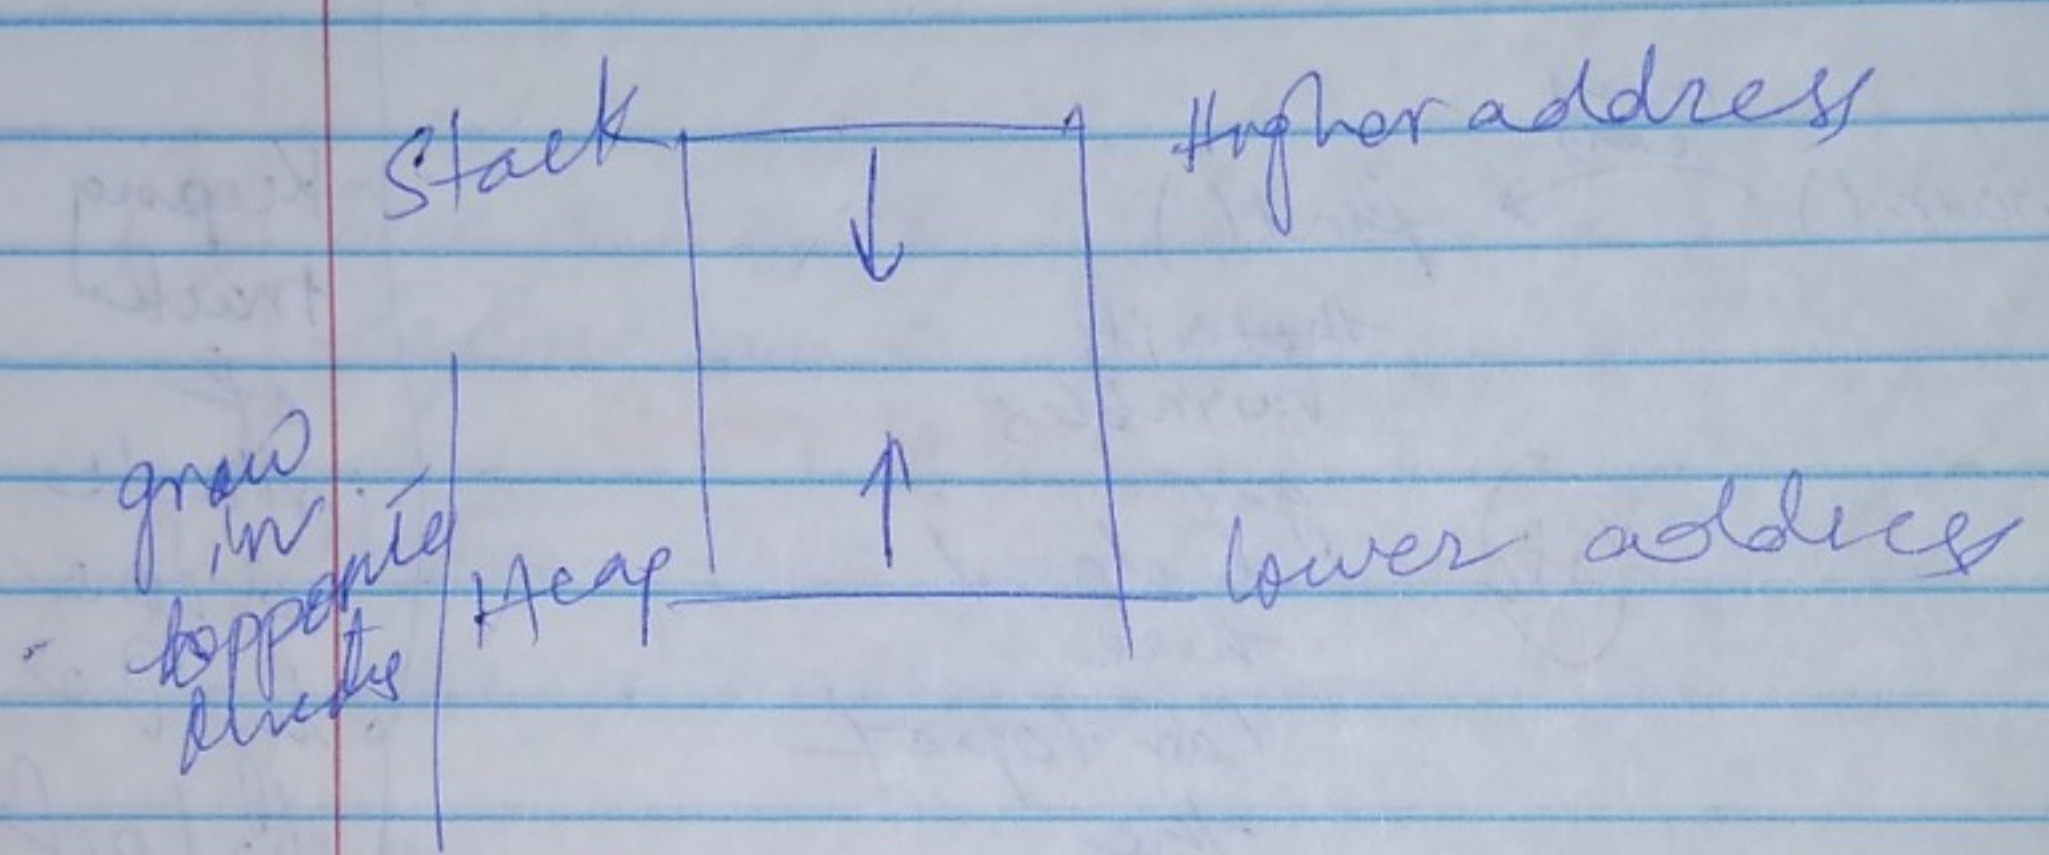 Stack
Higher address
grow
in
opposite
Heap
lower address